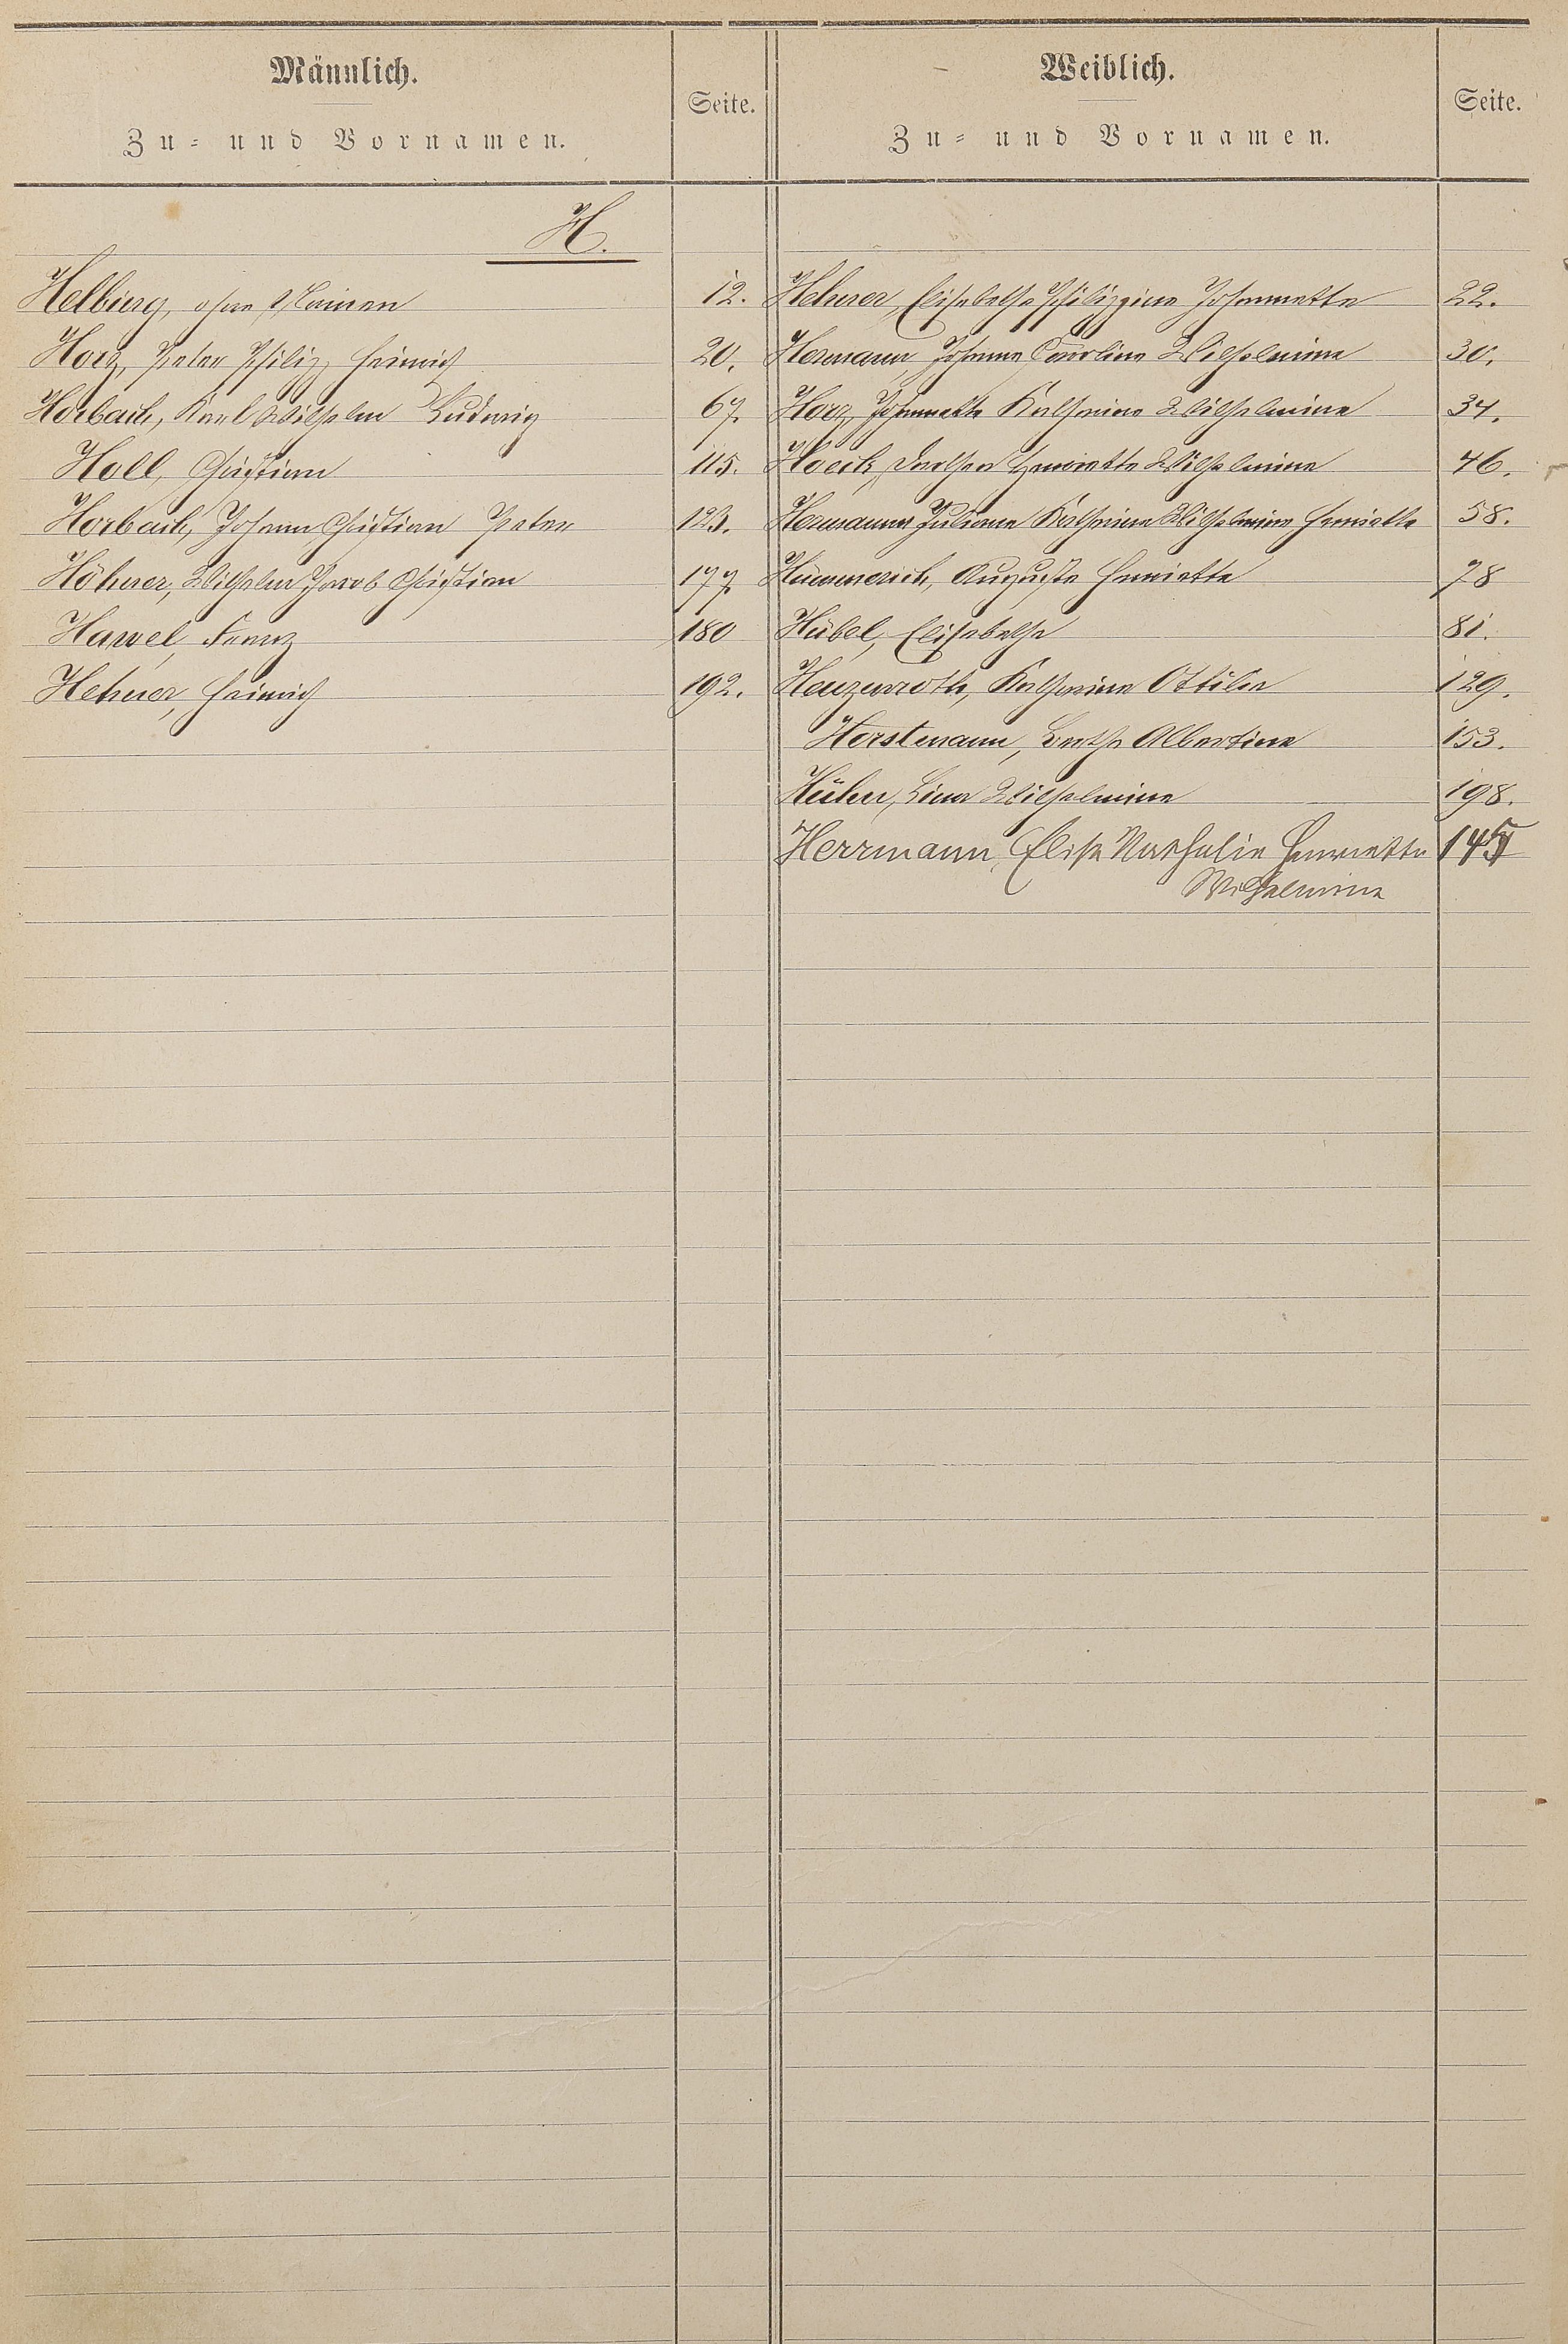 Männlich.
Zu- und Vornamen.
Seite.
Weiblich.
Zu- und Vornamen.
Seite.
H.
Helbing, ohne Namen 12.
Horz, Peter Philipp Heinrich 20.
Horbach, Karl Wilhelm Ludwig 67.
Holl, Christian 115.
Horbach, Johann Christian Peter 123.
Höhner, Wilhelm Jacob Christian 177.
Hawel, Franz 180
Hehner, Heinrich 192.
Hehner, Elisabetha Philippine Johannette 22.
Hermann, Johanna Caroline Wilhelmine 30.
Horz, Johannette Katharina Wilhelmine 34.
Henriette Wilhelmine 46.
Hermann, Juliane Katharina Wilhelmine Henriette 58.
Hümmerich, Auguste Henriette 78
Hübel, Elisabetha 81.
Henzenroth, Katharina Ottilie 129.
Horstmann, Bertha Albertine 153.
Hühn, Lina Wilhelmine 198.
Herrmann, Elise Nathalie Henriette
Wilhelmine